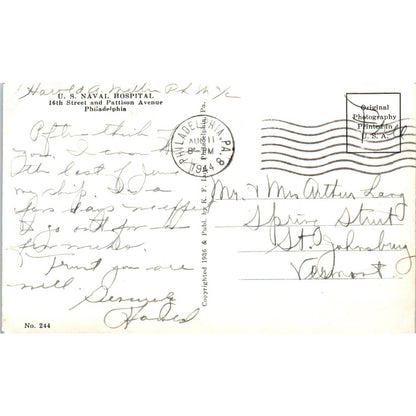 Harold A. Miller Ph M 2/c
U. S. NAVAL HOSPITAL
16th Street and Pattison Avenue
Philadelphia
Often think of
you. I
the last of June
my ship. In a
few days
to go out for a
few
Trust you are
well.
Sincerely
Harold
No. 244
Copyrighted 1936 & Publ. by K. F. Philadelphia, Pa.
PHILADELPHIA, PA. 8
AUG 11
8 PM
1944
Original
Photography
Printed in
U. S. A.
Mr. & Mrs Arthur Lang
Spring Street
St. Johnsbury
Vermont.